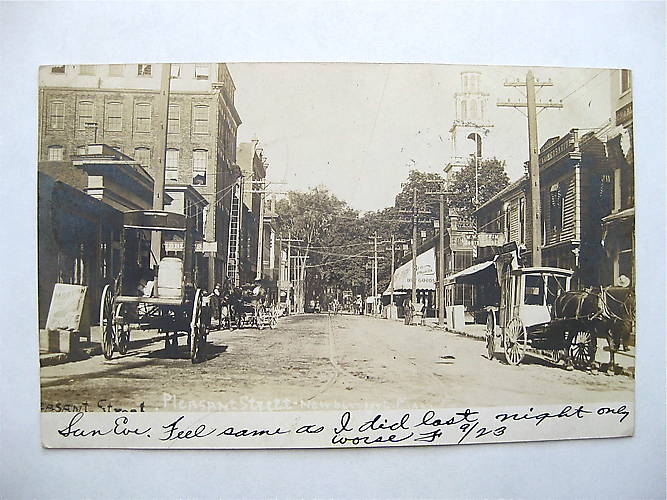 DRY GOODS
Pleasant Street
EASANT Street
Sun Eve. Feel same as I did last night only
worse F 9/23